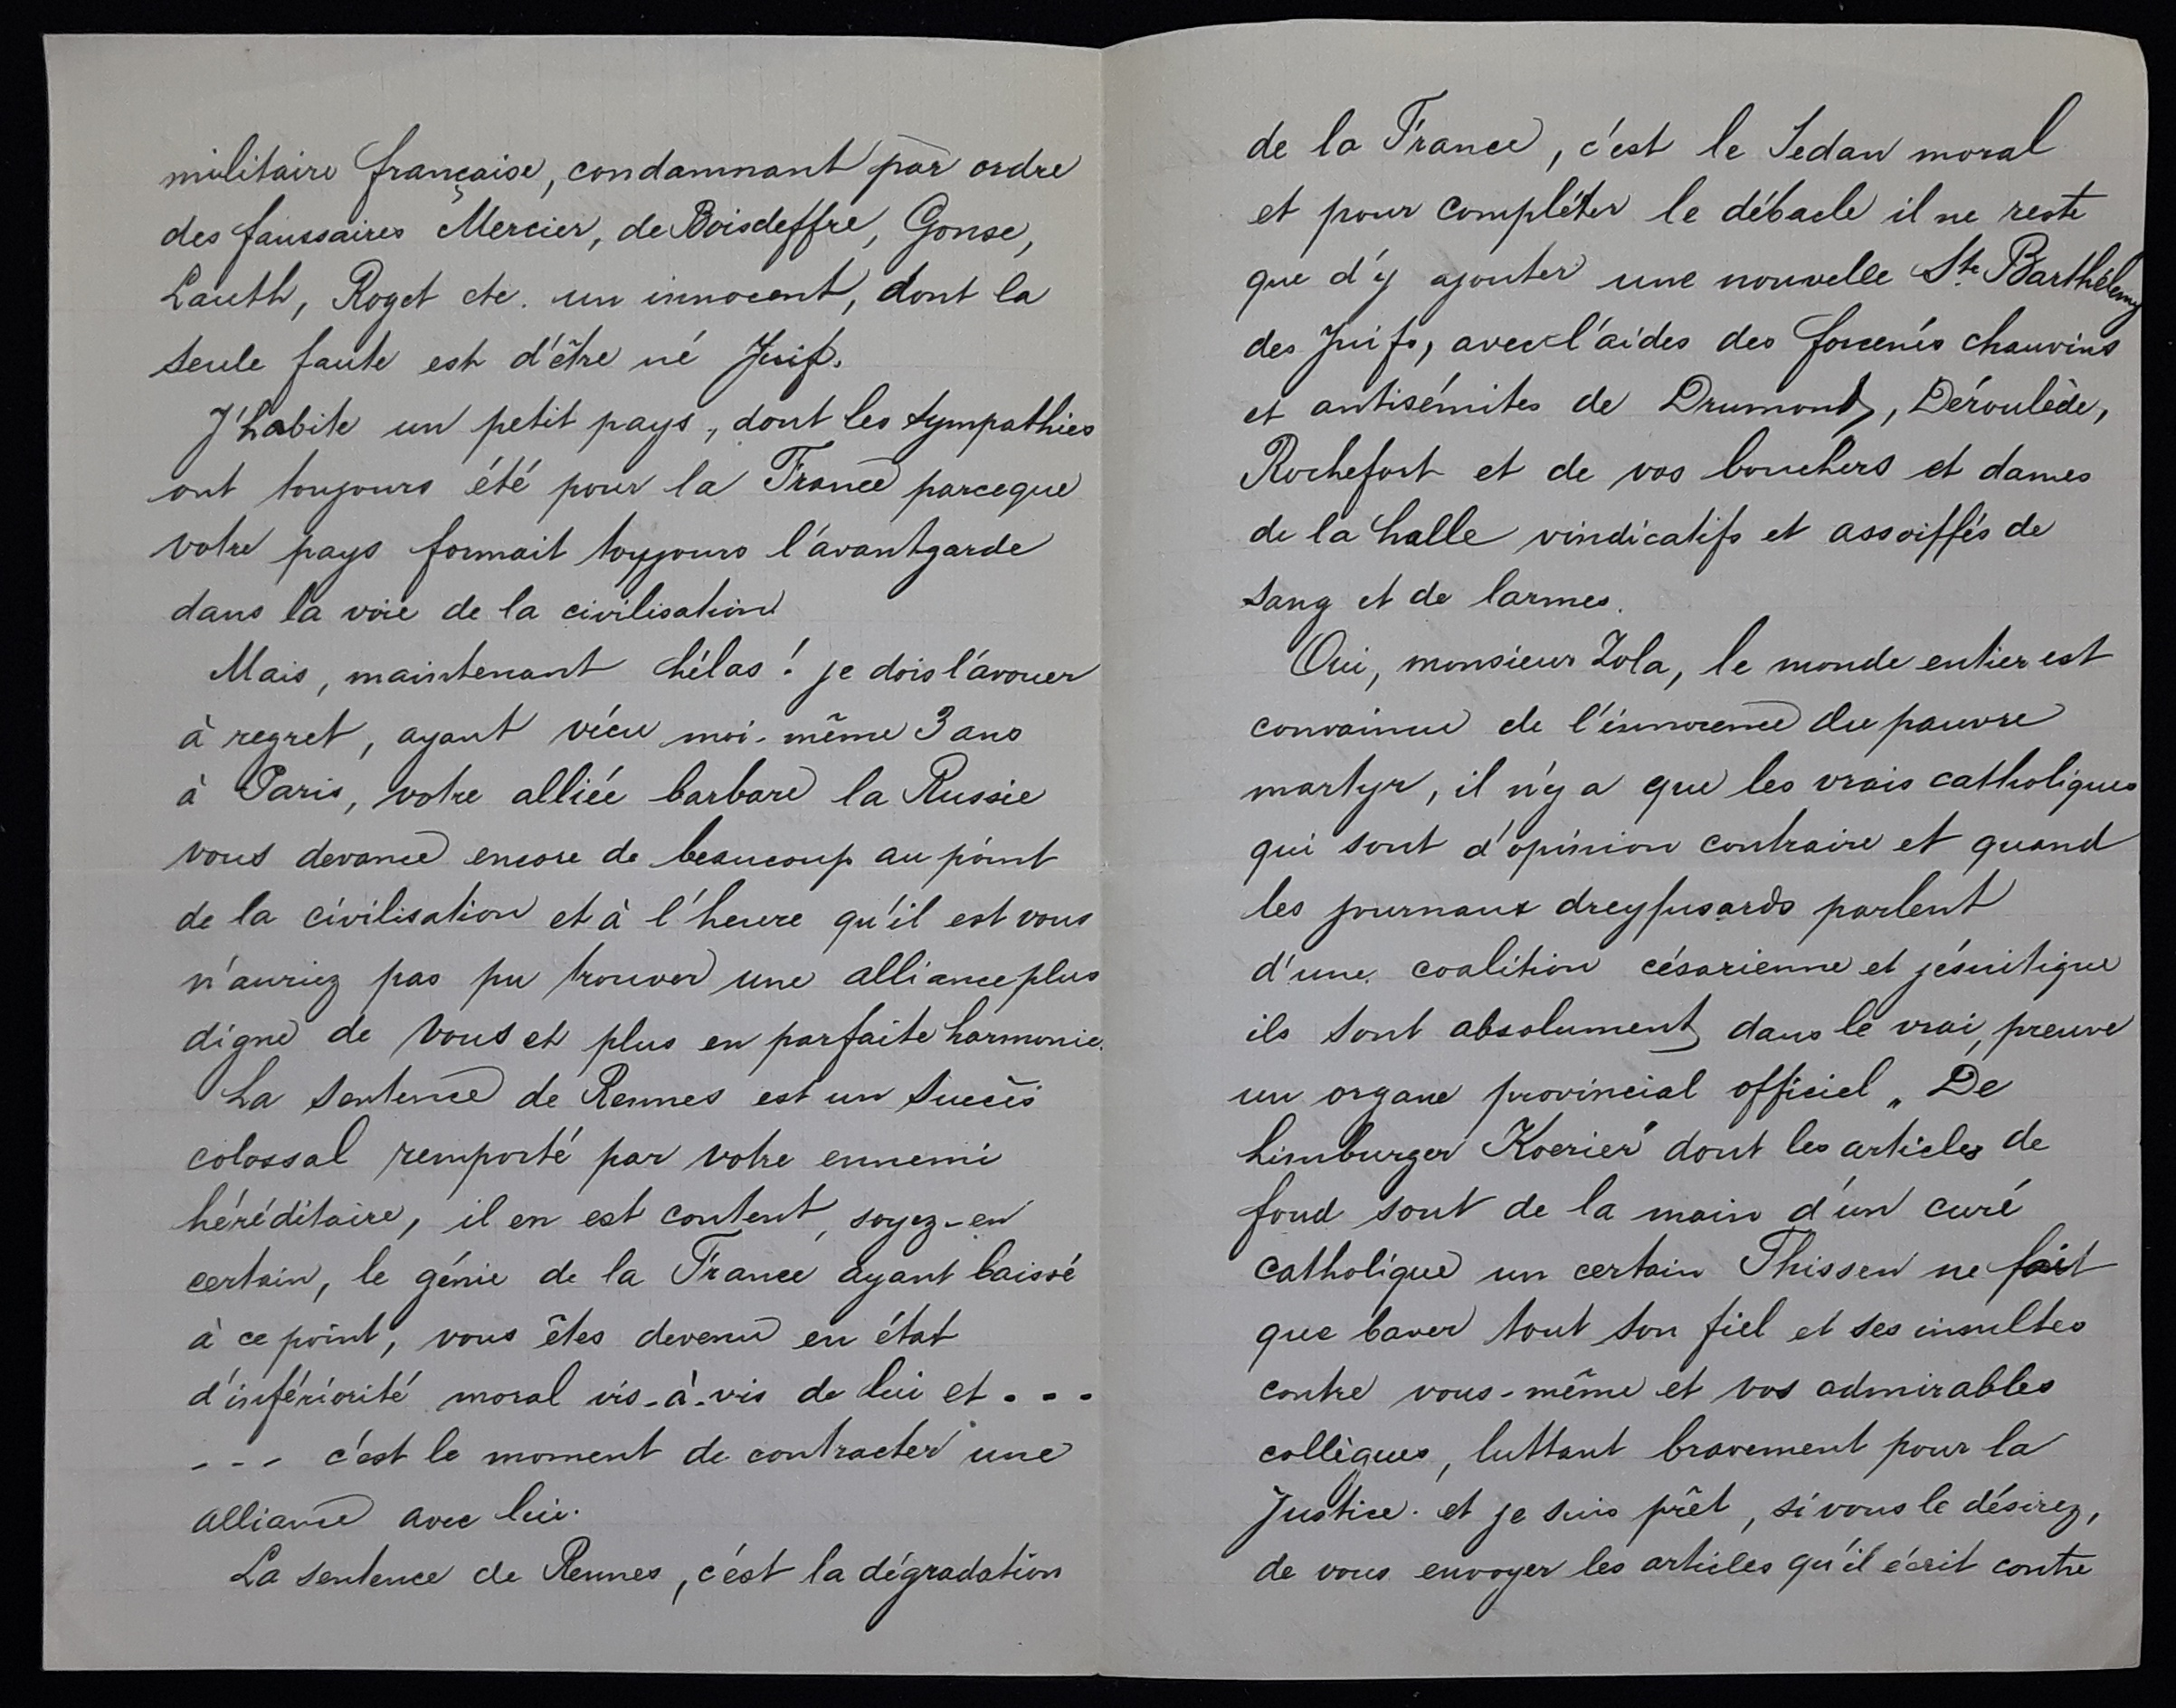 militaire française, condamnant par ordre
des faussaires Mercier, de Boisdeffre, Gonse,
Lauth, Roget etc. un innocent, dont la
seule faute est d'être né Juif.
J'habite un petit pays, dont les sympathies
ont toujours été pour la France parceque
votre pays formait toujours l'avantgarde
dans la voie de la civilisation
Mais, maintenant hélas! je dois l'avouer
à regret, ayant vécu moi-même 3 ans
à Paris, votre alliée barbare la Russie
vous devance encore de beaucoup au point
de la civilisation et à l'heure qu'il est vous
n'auriez pas pu trouver une alliance plus
digne de vous et plus en parfaite harmonie.
La sentence de Rennes est un succès
colossal remporté par votre ennemi
héréditaire, il en est content, soyez-en
certain, le génie de la France ayant baissé
à ce point, vous êtes devenu en état
d'infériorité moral vis-à-vis de lui et . . .
- - - c'est le moment de contracter une
alliance avec lui.
La sentence de Rennes, c'est la dégradation
de la France, c'est le Sedan moral
et pour compléter le débacle il ne reste
que d'y ajouter une nouvelle Ste. Barthélemy
des Juifs, avec l'aides des forcenés chauvins
et antisémites de Drumond, Déroulède,
Rochefort et de vos bouchers et dames
de la halle vindicatifs et assoiffés de
sang et de larmes.
Oui, monsieur Zola, le monde entier est
convaincu de l'innocence du pauvre
martyr, il n'y a que les vrais catholiques
qui sont d'opinion contraire et quand
les journaux dreyfusards parlent
d'une coalition césarienne et jésuitique
ils sont absolument dans le vrai, preuve
un organe provincial officiel „De
Limburger Koerier" dont les articles de
fond sont de la main d'un curé
catholique un certain Thissen ne fait
que baver tout son fiel et ses insultes
contre vous-même et vos admirables
collègues, luttant bravement pour la
Justice. et je suis prêt, si vous le désirez,
de vous envoyer les articles qu'il écrit contre